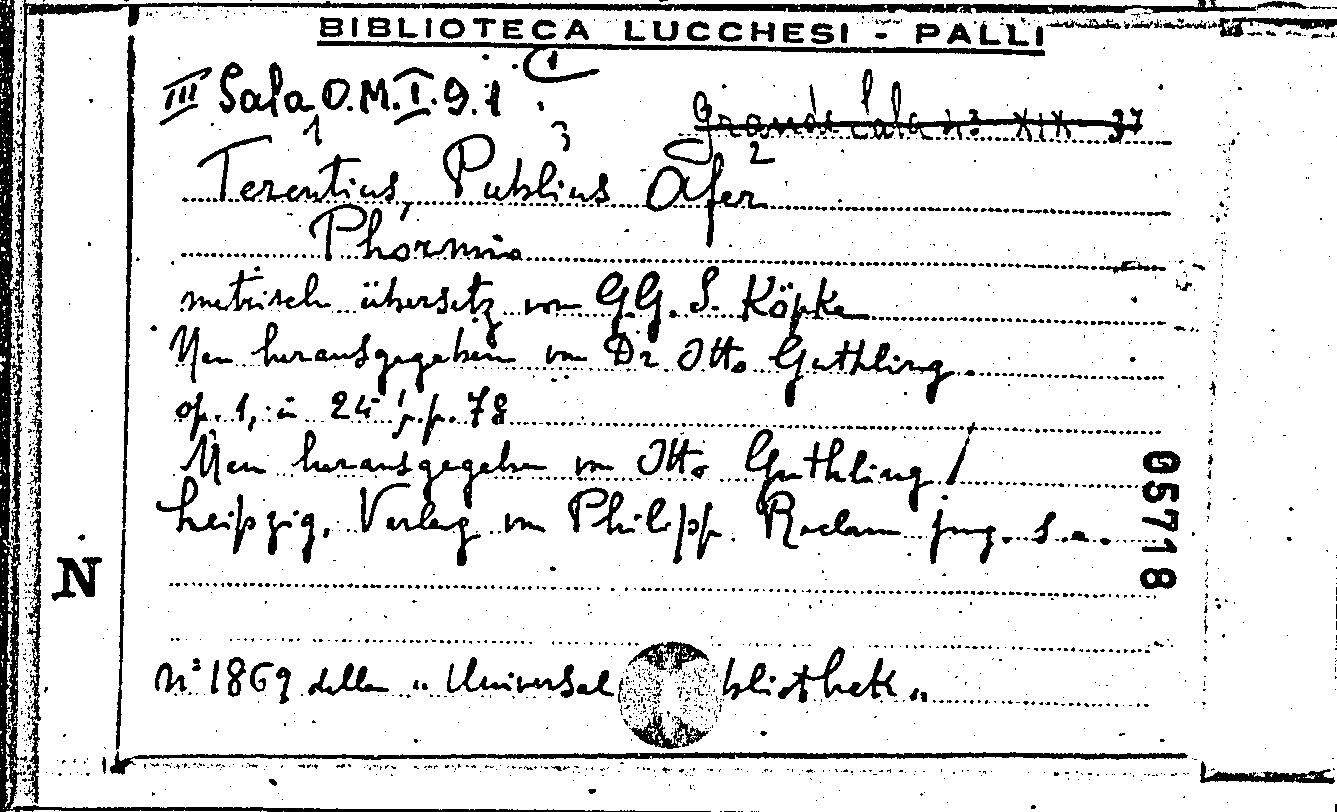 BIBLIOTECA LUCCHESI - PALLI
III Sala O.M.I.9.1 (1
Grande Sala 23 XIX 37
1 3 2
Terentius, Publius Afer
Phormio
metrisch übersetz von G.G. S. Köpke
Neu herausgegeben von Dr Otto Guthling.
op. 1, in 24° p.p. 78
Neu herausgegeben von Otto Guthling /
Leipzig, Verlag von Philipp Reclam jung. s.a.
05718
N
n° 1869 della "Universal bliothek"